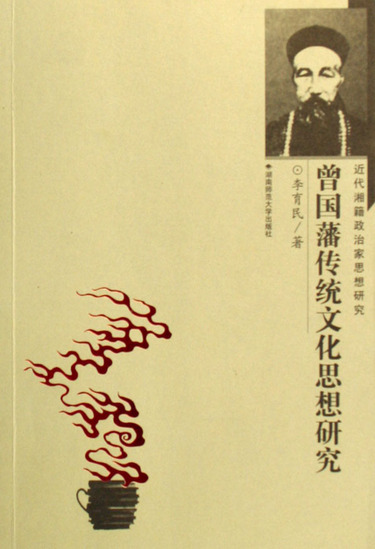 近代湘籍政治家思想研究
曾国藩传统文化思想研究
⊙李育民/著
湖南师范大学出版社